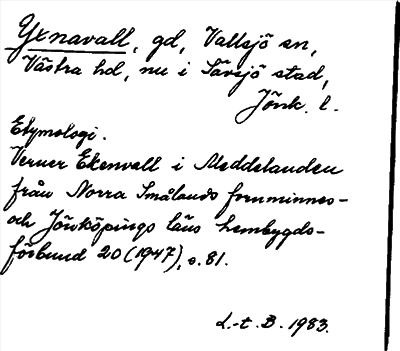 Yxnavall, gd, Vallsjö sn,
Västra hd, nu i Sävsjö stad,
Jönk. l.
Etymologi.
Verner Ekenvall i Meddelanden
från Norra Smålands fornminnes-
och Jönköpings läns hembygds-
förbund 20 (1947), s. 81.
L.-t. B. 1983.